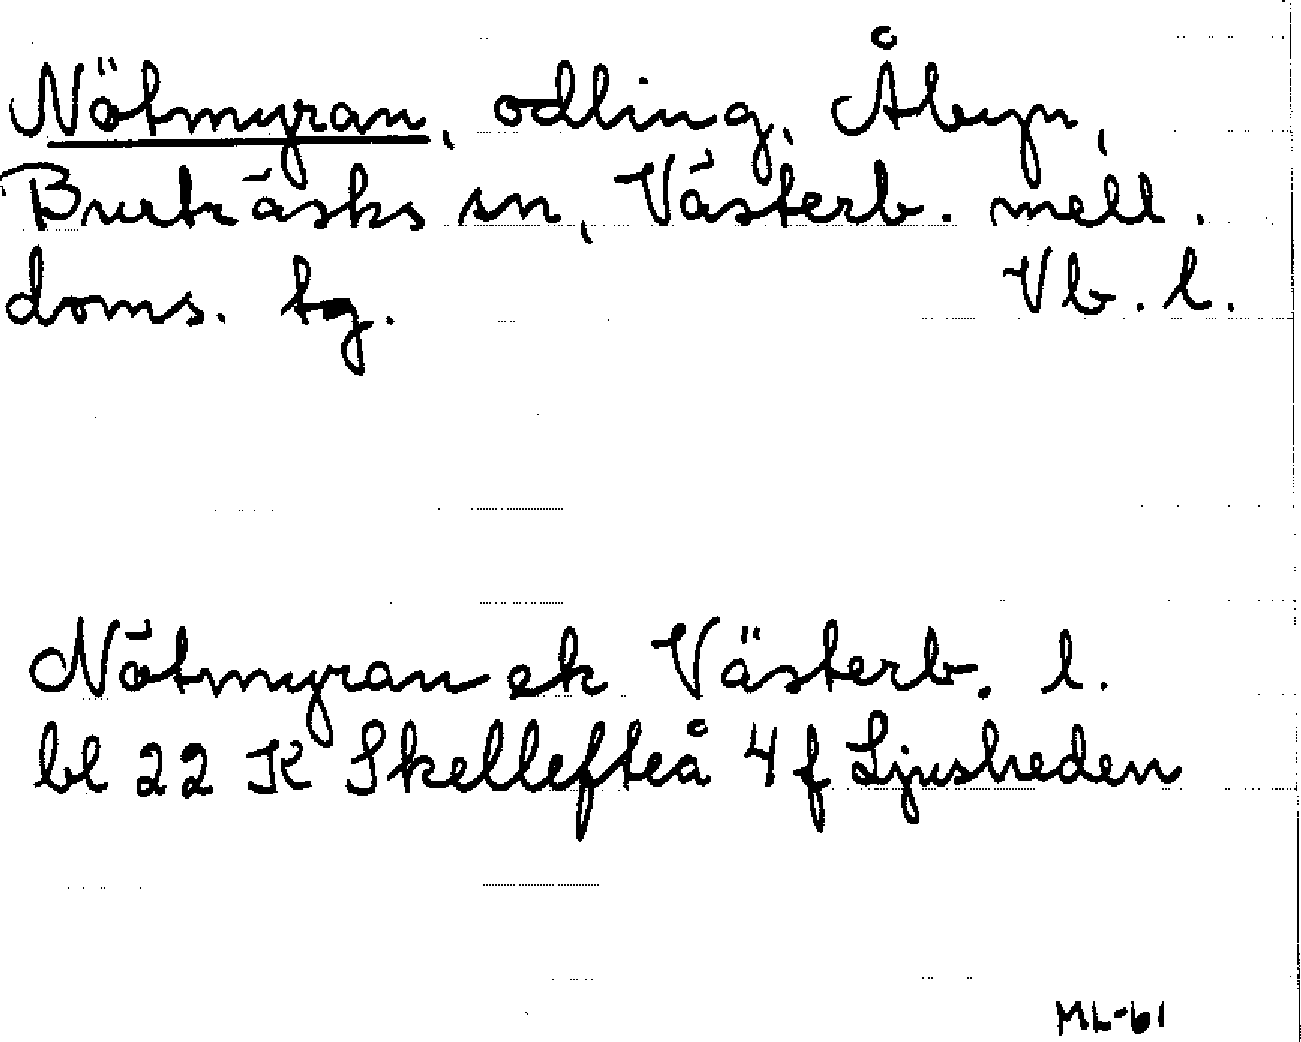 Nötmyran, odling, Åbyn,
Burträsks sn, Västerb. mell.
doms. tg. Vb. l.
Nötmyran ek Västerb. l.
bl 22 K Skellefteå 4 f Ljusheden
ML-61